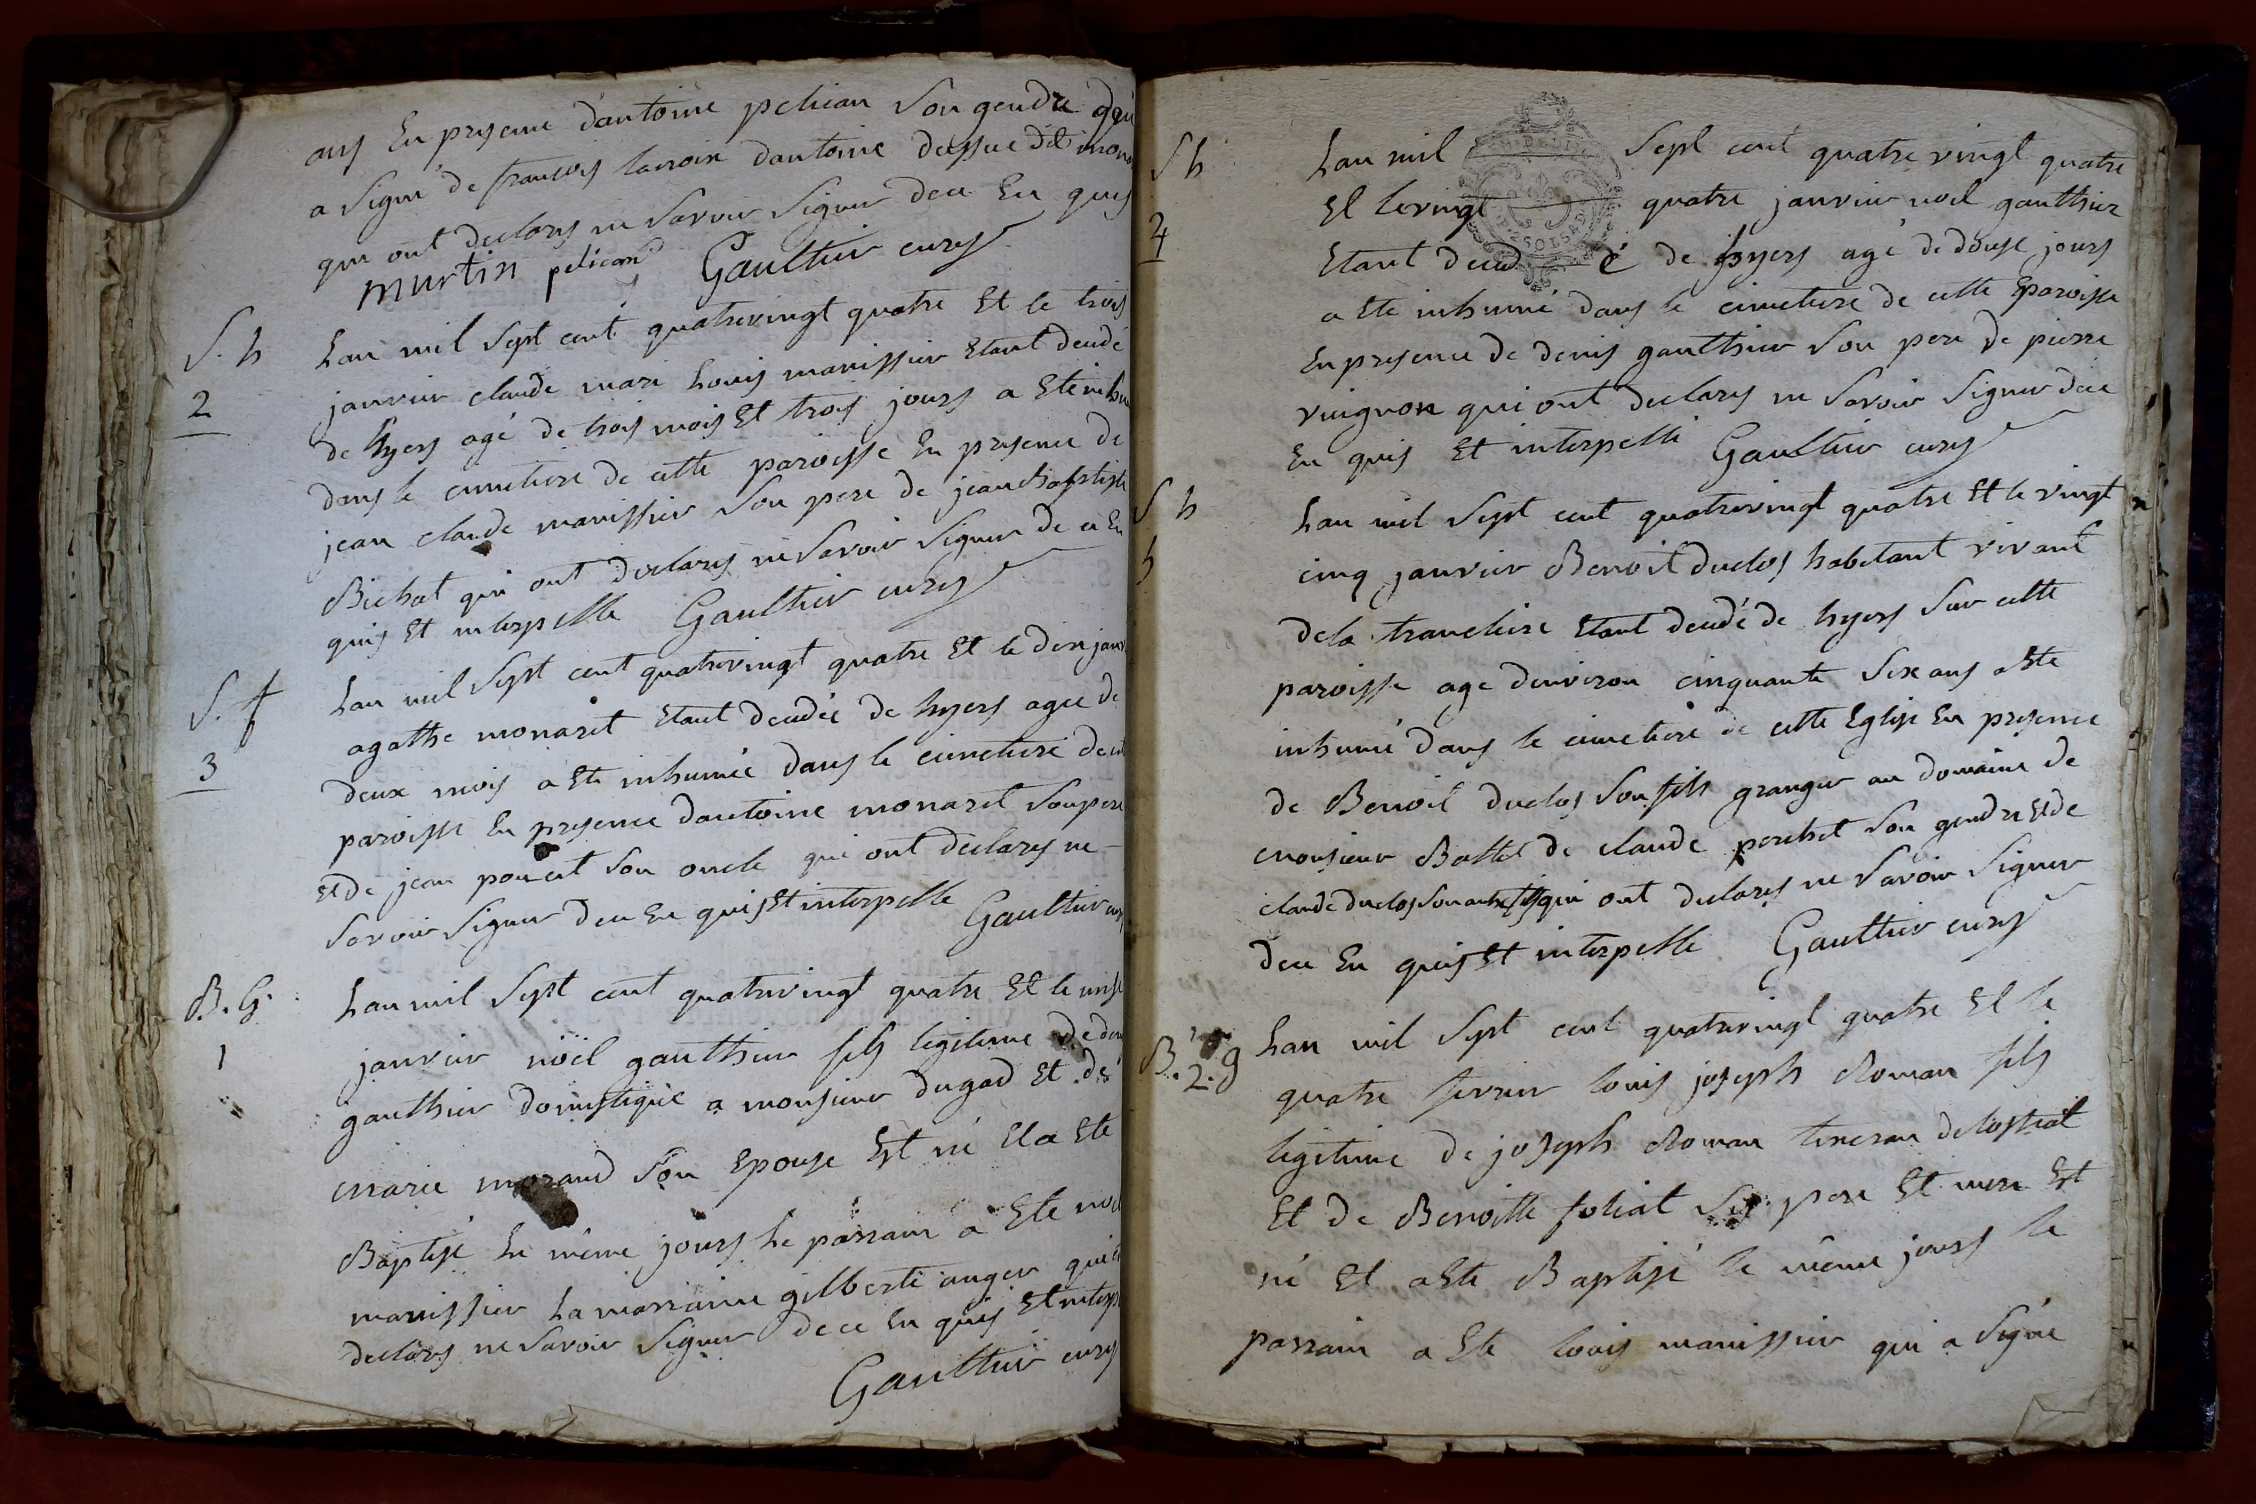 ans En presence dantoine pelican Son gendre qui
a Signé de francois lacroix dantoine dessue dit
qui ont declarés ne Savoir Signer dece En quis
murtin pelicand Gaultier curé
S. h
2
Lan mil Sept cent quatrevingt quatre Et le trois
janvier claude marie Louis manissier Etant decedé
de hyers agé de trois mois Et trois jours a Ete inhu
dans le cimetiere de cette paroisse En presence de
jean claude manissier Son pere de jean Baptiste
Bichat qui ont declarés ne Savoir Signer de ce En
quis Et interpelle Gaultier curé
S. f
3
Lan mil Sept cent quatrevingt quatre Et le dix janv
agathe monaret Etant decedée de hyers agee de
deux mois a Ete inhumée dans le cimetiere de
paroisse En presence dantoine monaret Son pere
Et de jean Son oncle qui ont declarés ne
Savoir Signer dece En quis Et interpelle Gaultier curé
B. G.
1
Lan mil Sept cent quatrevingt quatre Et le onse
janvier noël gauthier fils legitime de
gauthier domestique a monsieur dugad Et de
marie morand Son Epouse Est né Et a Ete
Baptisé Le même jours Le parrain a Ete noel
manissier La marraine gilberte auger qui
declarés ne Savoir Signer dece En quis Et interp
Gaultier curé
S h
4
Lan mil Sept cent quatre vingt quatre
Et le vingt quatre janvier noel gauthier
Etant deced é de hyers agé de douse jours
a Ete inhumé dans le cimetiere de cette paroisse
En presence de denis gauthier Son pere de pierre
vuignon qui ont declarés ne Savoir Signer dece
En quis Et interpellé Gaultier curé
S h
5
Lan mil Sept cent quatrevingt quatre Et le vingt
cinq janvier Benoit duclos habitant vivant
de la trancliere Etant decedé de hyers Sur cette
paroisse age denviron cinquante Six ans a Ete
inhumé dans le cimetiere de cette Eglise En presence
de Benoit duclos Son fils granger au domaine de
monsieur Bottet de claude perchet Son gendre Et de
claude duclos Son autre fils qui ont declarés ne Savoir Signer
dece En quis Et interpelle Gaultier curé
B. 2. g
Lan mil Sept cent quatrevingt quatre Et le
quatre fevrier louis joseph Roman fils
legitime de joseph Roman
Et de Benoitte foliat Ses pere Et mere Est
né Et a Ete Baptisé le même jours le
parrain a Ete louis manissier qui a Signé